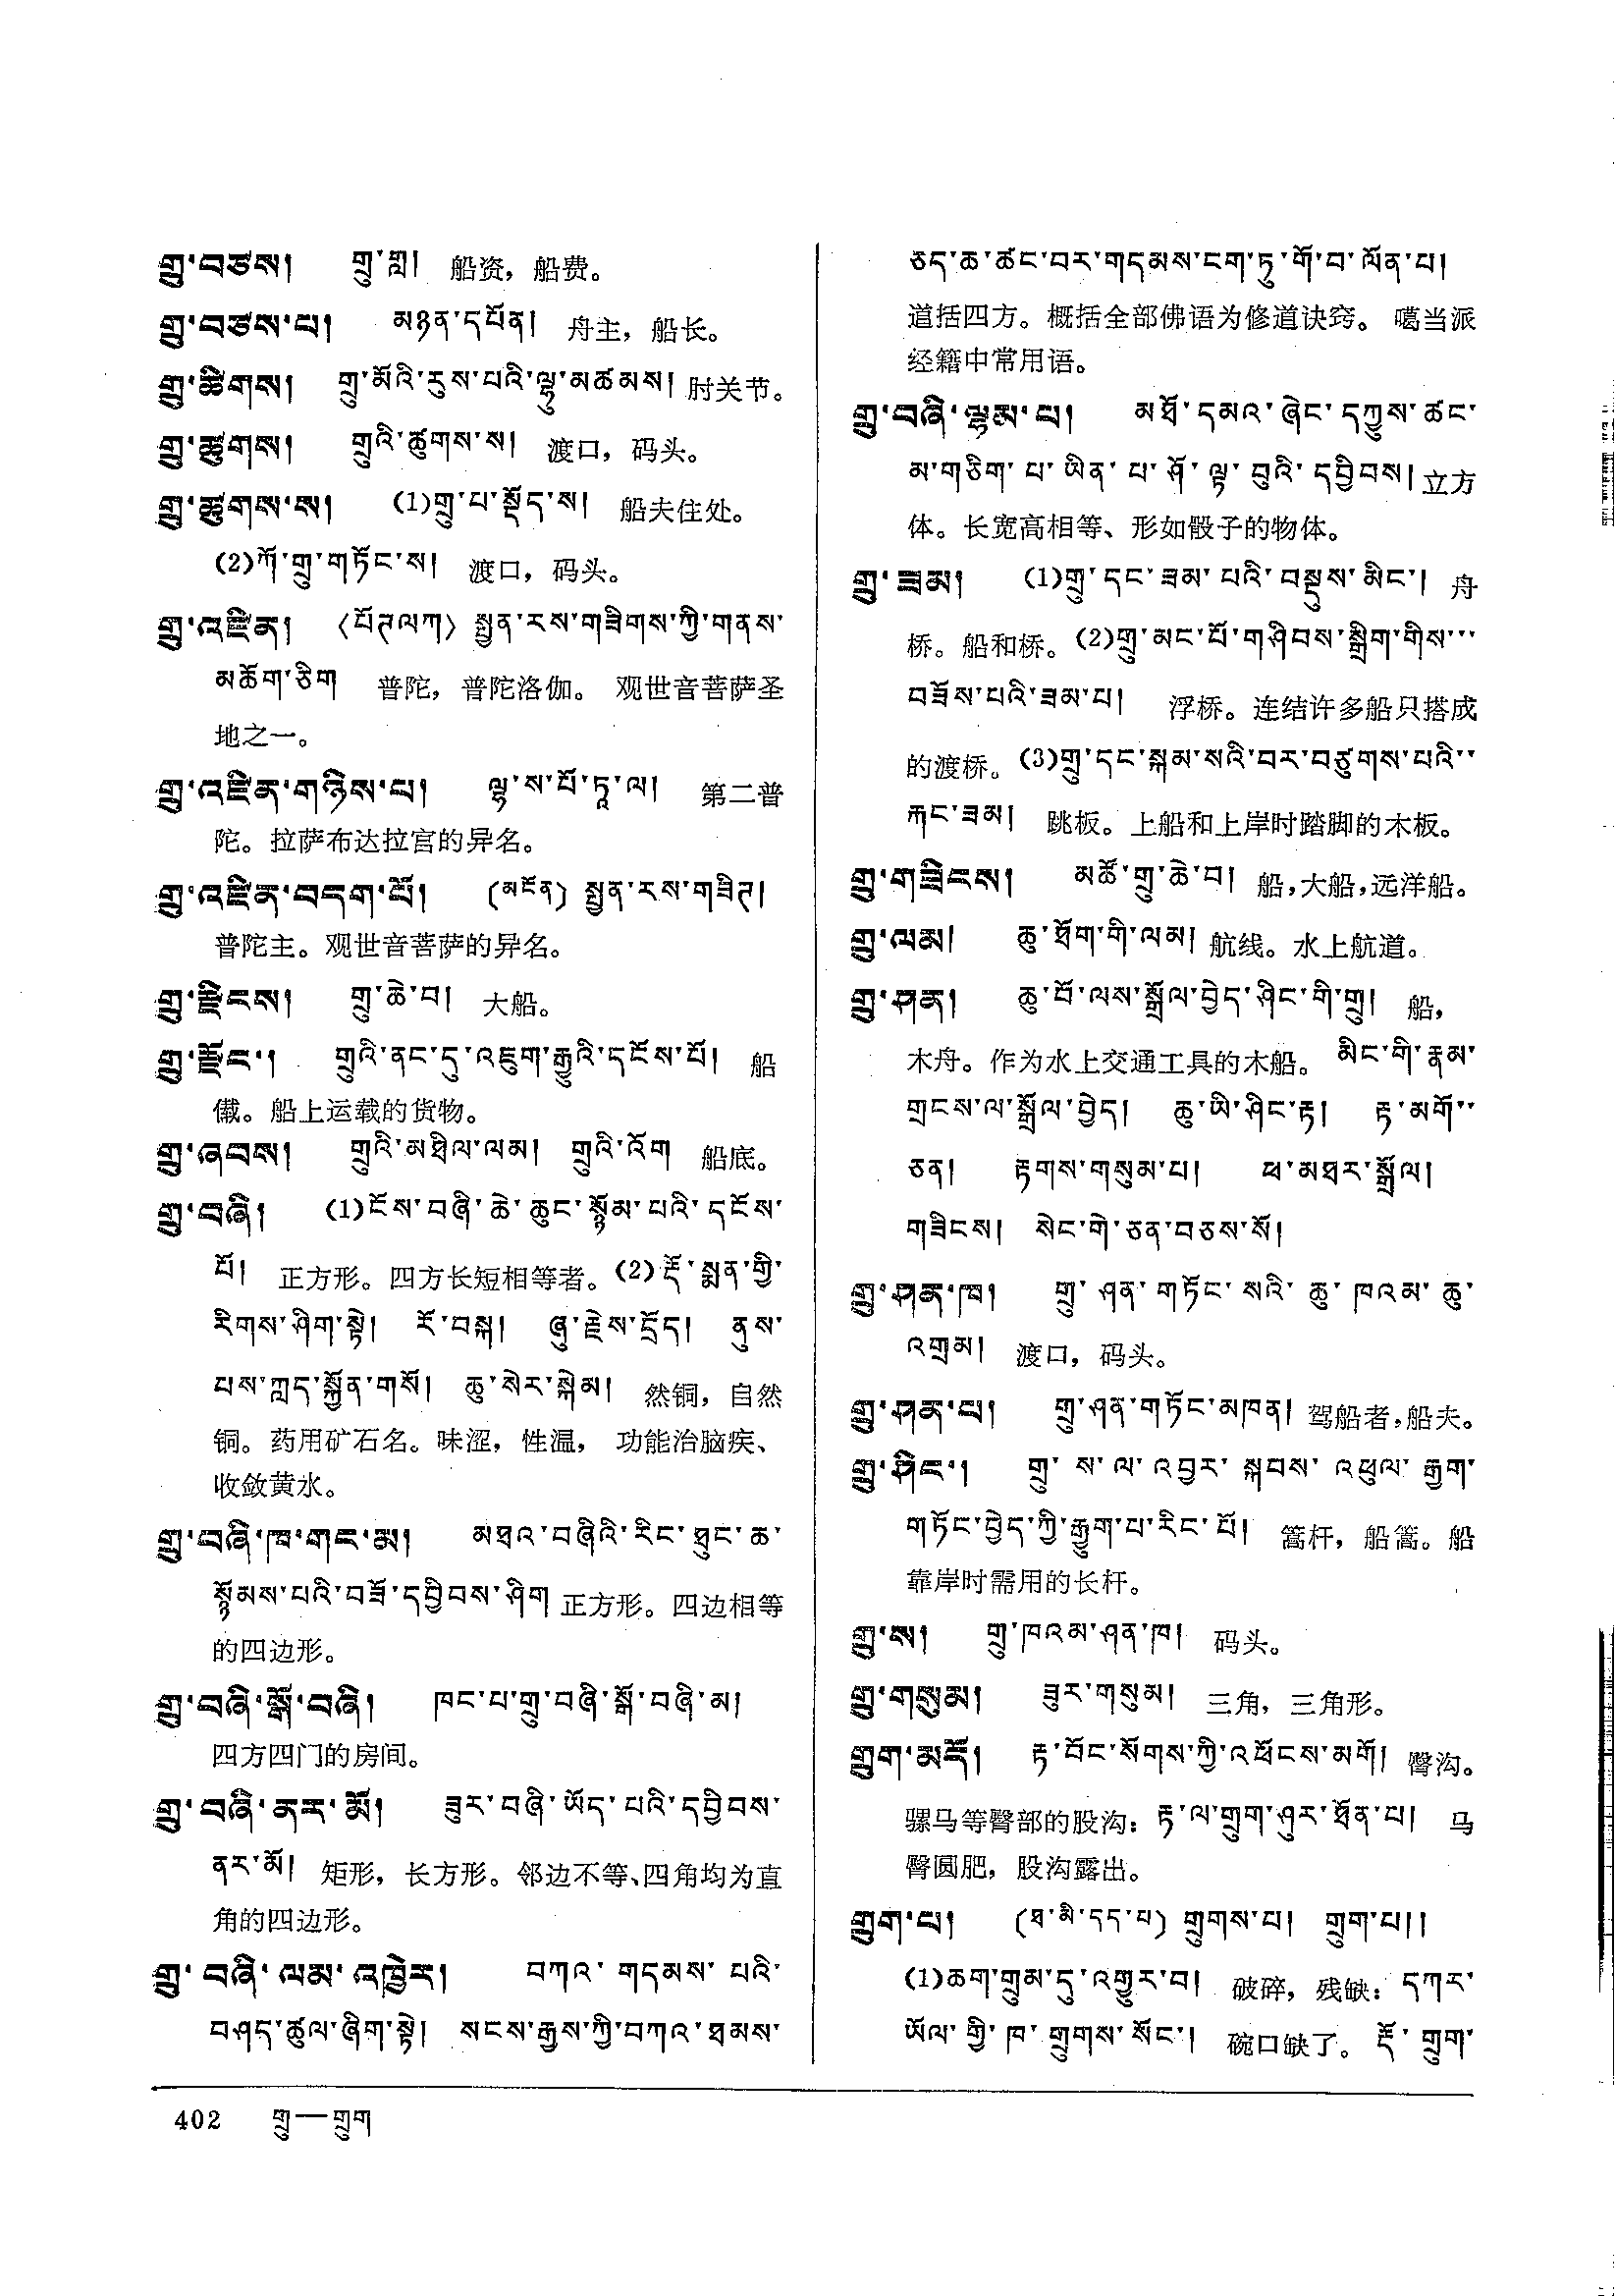 གྲུ་བཙས། གྲུ་གླ། 船资，船费。
གྲུ་བཙས་པ། མཉན་དཔོན། 舟主，船长。
གྲུ་ཚིགས། གྲུ་མོའི་རུས་པའི་ལྷུ་མཚམས། 肘关节。
གྲུ་ཚུགས། གྲུའི་ཚུགས་ས། 渡口，码头。
གྲུ་ཚུགས་ས། (1)གྲུ་པ་སྡོད་ས། 船夫住处。
(2)ཀོ་གྲུ་གཏོང་ས། 渡口，码头。
གྲུ་འཛིན། 〈པོཊལཀ〉 སྤྱན་རས་གཟིགས་ཀྱི་གནས་
མཆོག་ཅིག 普陀，普陀洛伽。 观世音菩萨圣
地之一。
གྲུ་འཛིན་གཉིས་པ། ལྷ་ས་པོ་ཏཱ་ལ། 第二普
陀。拉萨布达拉宫的异名。
གྲུ་འཛིན་བདག་པོ། (མངོན) སྤྱན་རས་གཟིཊ།
普陀主。观世音菩萨的异名。
གྲུ་རྫིངས། གྲུ་ཆེ་བ། 大船。
གྲུ་རྫོང་། གྲུའི་ནང་དུ་འཇུག་རྒྱུའི་དངོས་པོ། 船
儎。船上运载的货物。
གྲུ་ཞབས། གྲུའི་མཐིལ་ལམ། གྲུའི་འོག 船底。
གྲུ་བཞི། (1)ངོས་བཞི་ཆེ་ཆུང་སྙོམ་པའི་དངོས་
པོ། 正方形。四方长短相等者。(2)རྡོ་སྨན་གྱི་
རིགས་ཤིག་སྟེ། རོ་བསྐ། ཞུ་རྗེས་དྲོད། ནུས་
པས་ཀླད་སྐྱོན་གསོ། ཆུ་སེར་སྐེམ། 然铜，自然
铜。药用矿石名。味涩，性温， 功能治脑疾、
收敛黄水。
གྲུ་བཞི་ཁ་གང་མ། མཐའ་བཞིའི་རིང་ཐུང་ཆ་
སྙོམས་པའི་བཟོ་དབྱིབས་ཤིག 正方形。四边相等
的四边形。
གྲུ་བཞི་སྒོ་བཞི། ཁང་པ་གྲུ་བཞི་སྒོ་བཞི་མ།
四方四门的房间。
གྲུ་བཞི་ནར་མོ། ཟུར་བཞི་ཡོད་པའི་དབྱིབས་
ནར་མོ། 矩形，长方形。邻边不等、四角均为直
角的四边形。
གྲུ་བཞི་ལམ་འཁྱེར། བཀའ་གདམས་པའི་
བཤད་ཚུལ་ཞིག་སྟེ། སངས་རྒྱས་ཀྱི་བཀའ་ཐམས་
ཅད་ཆ་ཚང་བར་གདམས་ངག་ཏུ་གོ་བ་ལོན་པ།
道括四方。概括全部佛语为修道诀窍。 噶当派
经籍中常用语。
གྲུ་བཞི་ལྷམ་པ། མཐོ་དམའ་ཞེང་དཀྱུས་ཚང་
མ་གཅིག་པ་ཡིན་པ་ཤོ་ལྟ་བུའི་དབྱིབས། 立方
体。长宽高相等、形如骰子的物体。
གྲུ་ཟམ། (1)གྲུ་དང་ཟམ་པའི་བསྡུས་མིང་། 舟
桥。船和桥。(2)གྲུ་མང་པོ་གཤིབས་སྒྲིག་གིས་་་
བཟོས་པའི་ཟམ་པ། 浮桥。连结许多船只搭成
的渡桥。(3)གྲུ་དང་སྐམ་སའི་བར་བཙུགས་པའི་་
རྐང་ཟམ། 跳板。上船和上岸时踏脚的木板。
གྲུ་གཟིངས། མཚོ་གྲུ་ཆེ་བ། 船，大船，远洋船。
གྲུ་ལམ། ཆུ་ཐོག་གི་ལམ། 航线。水上航道。
གྲུ་ཤན། ཆུ་བོ་ལས་སྒྲོལ་བྱེད་ཤིང་གི་གྲུ། 船，
木舟。作为水上交通工具的木船。 མིང་གི་རྣམ་
གྲངས་ལ་སྒྲོལ་བྱེད། ཆུ་ཡི་ཤིང་རྟ། རྟ་མགོ་་
ཅན། རྟགས་གསུམ་པ། ཕ་མཐར་སྒྲོལ།
གཟིངས། སེང་གེ་ཅན་བཅས་སོ།
གྲུ་ཤན་ཁ། གྲུ་ཤན་གཏོང་སའི་ཆུ་ཁའམ་ཆུ་
འགྲམ། 渡口，码头。
གྲུ་ཤན་པ། གྲུ་ཤན་གཏོང་མཁན། 驾船者，船夫。
གྲུ་ཤིང་། གྲུ་ས་ལ་འབྱར་སྐབས་འཕུལ་རྒྱག་
གཏོང་བྱེད་ཀྱི་རྒྱུག་པ་རིང་པོ། 篙杆，船篙。船
靠岸时需用的长杆。
གྲུ་ས། གྲུ་ཁའམ་ཤན་ཁ། 码头。
གྲུ་གསུམ། ཟུར་གསུམ། 三角，三角形。
གྲུག་མདོ། རྟ་བོང་སོགས་ཀྱི་འཕོངས་མགོ། 臀沟。
骡马等臀部的股沟：རྟ་ལ་གྲུག་ཤུར་ཐོན་པ། 马
臀圆肥，股沟露出。
གྲུག་པ། (ཐ་མི་དད་པ) གྲུགས་པ། གྲུག་པ།།
(1)ཆག་གྲུམ་དུ་འགྱུར་བ། 破碎，残缺：དཀར་
ཡོལ་གྱི་ཁ་གྲུགས་སོང་། 碗口缺了。 རྡོ་གྲུག་
402 གྲུ—གྲུག